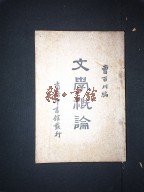 曹百川編
文學概論
商務印書館發行